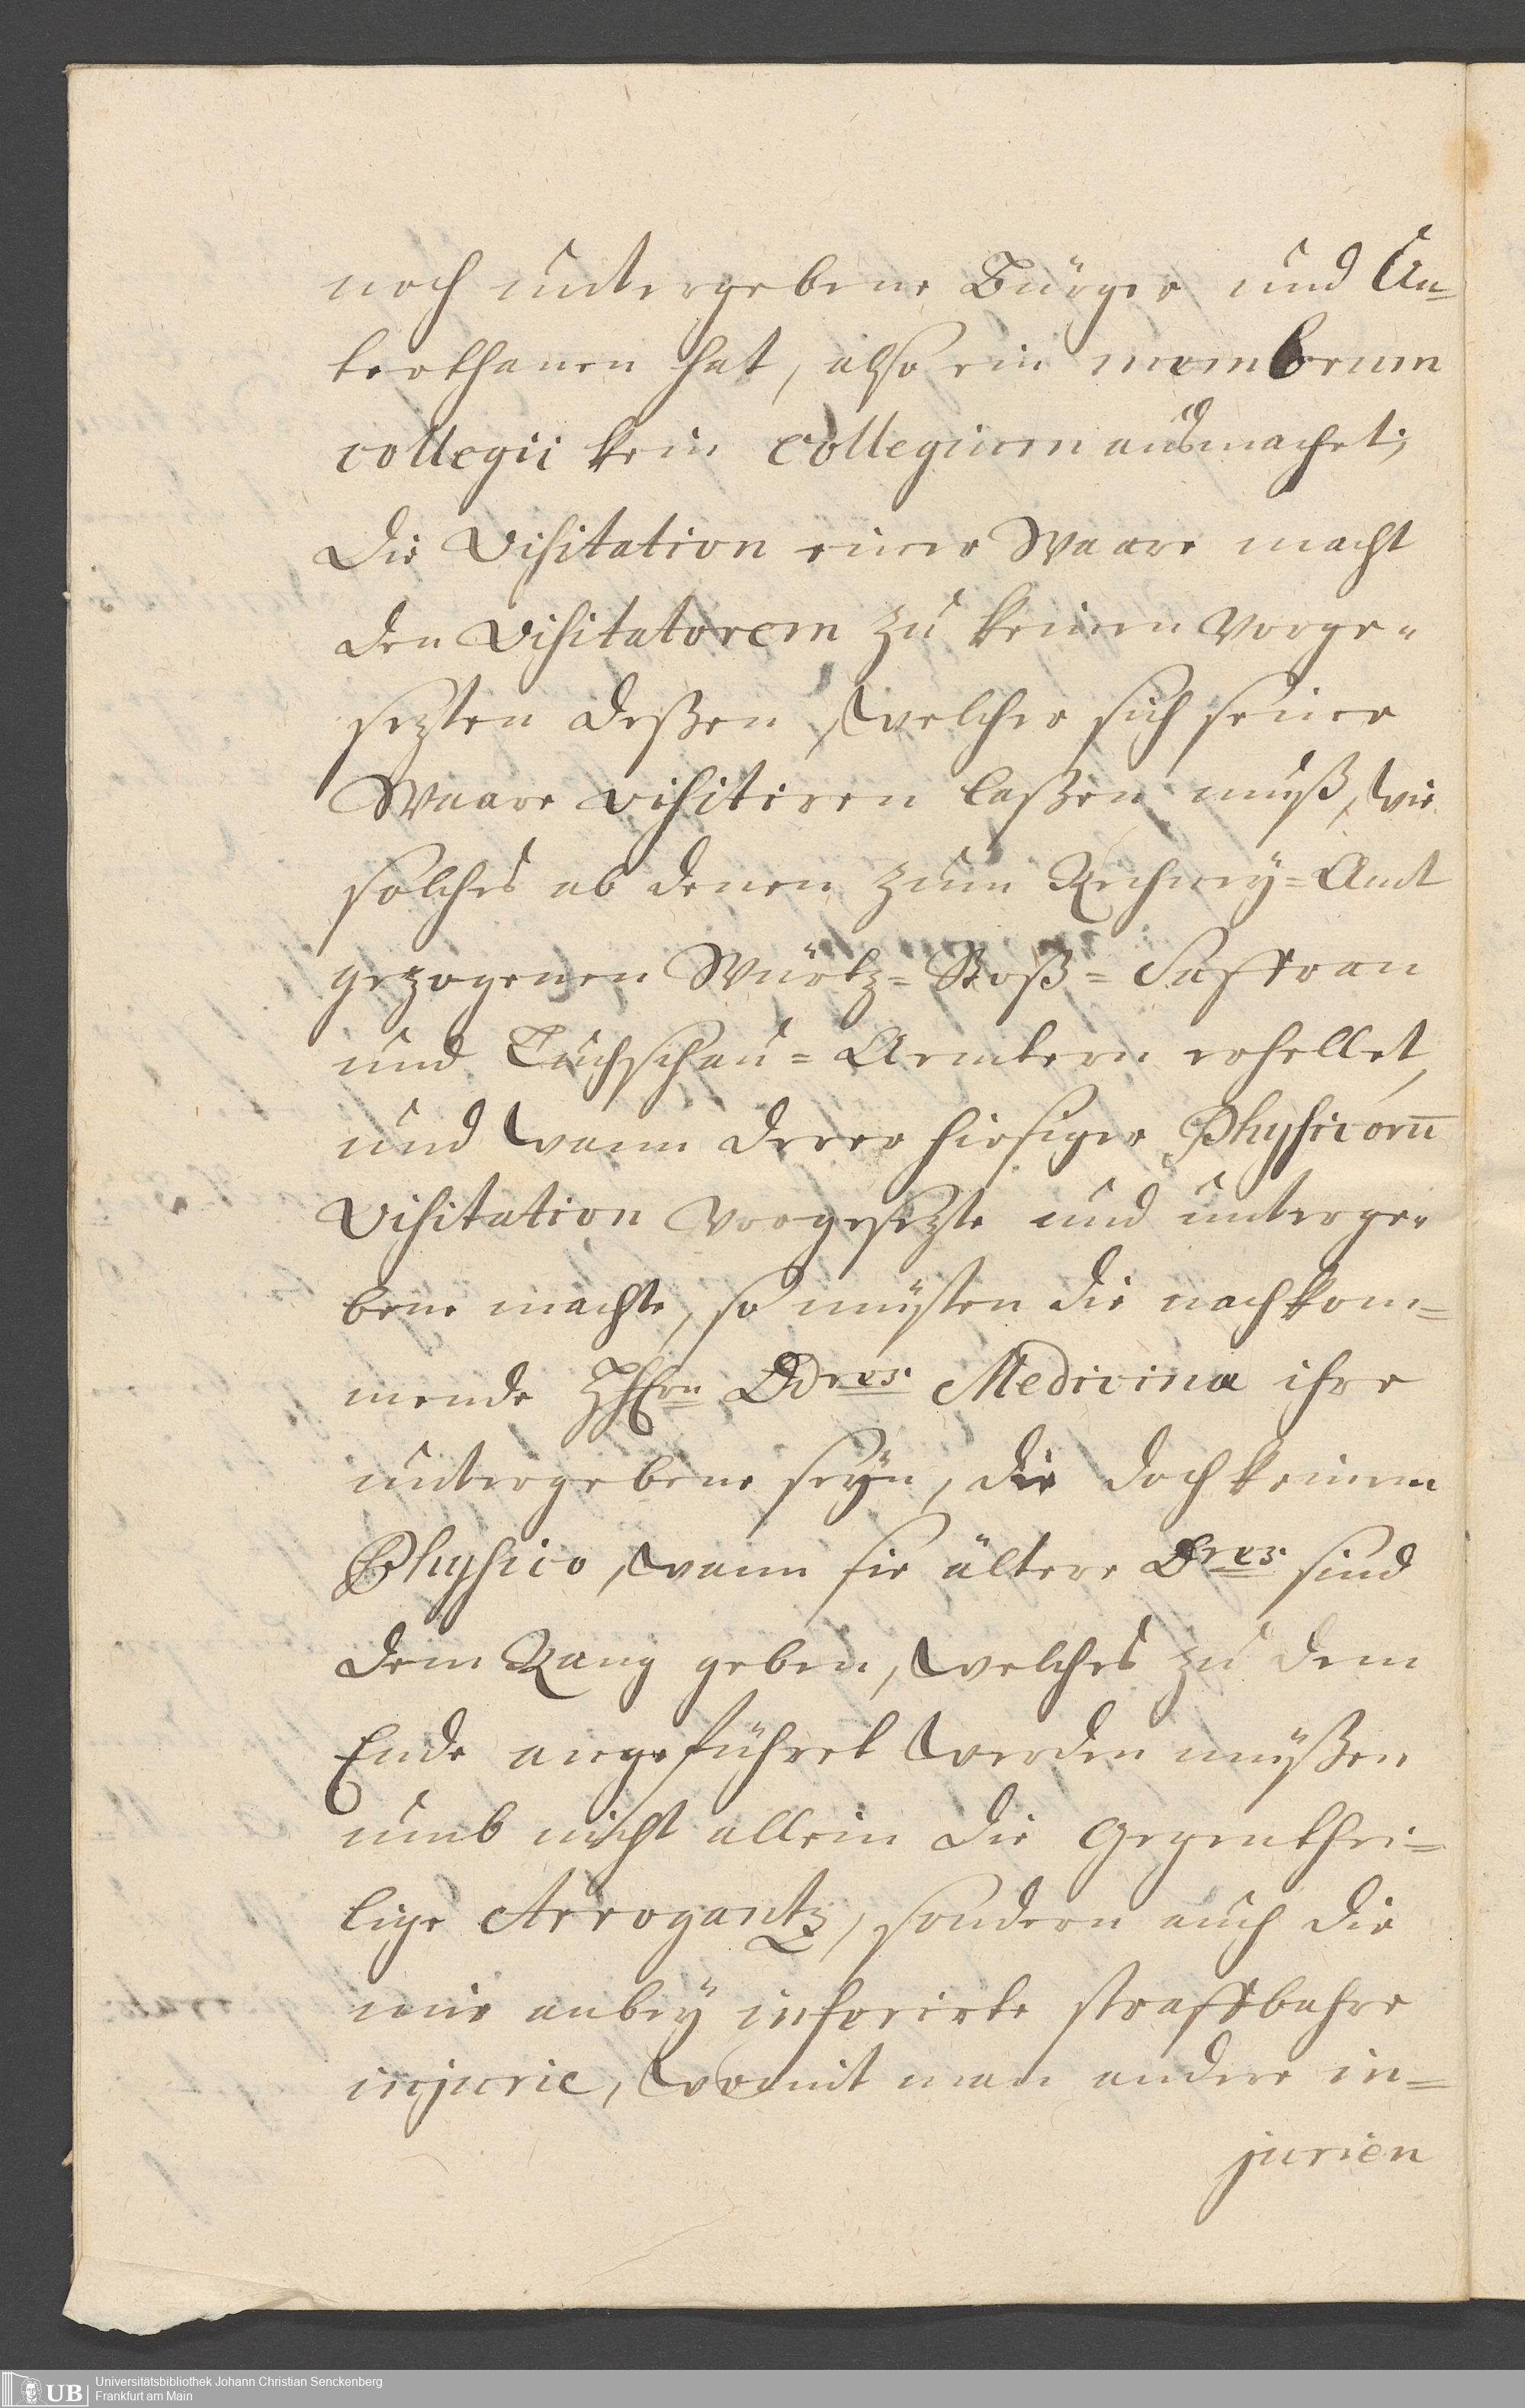 noch untergebene Bürger und Un-
terthanen hat, also ein membrum
collegii kein collegium ausmachet;
Die Visitation einer Waare macht
den Visitatorem zu keinen Vorge-
sezten deßen, welcher sich seine
Waare visitiren laßen muß, wie
solches ab denen zum Rechney-Amt
gezogenen Würtz- Roß- Saffran
und Tuchschau-Aemtern erhellet,
und wann derer hiesiger Physicorū
Visitation Vorgesezte und unterge-
bene machte, so müsten die nachkom-
mende HHrn Ddres Medicinæ ihre
untergebene seyn, die doch keinem
Physico, wann sie ältere Dres sind
dem Rang geben, welches zu dem
Ende angeführet werden müßen
umb nicht allein die Gegenthei-
lige Arrogantz, sondern auch die
mir anbey inferirte straffbahre
injurie, womit man andere in-
jurien
UB
Universitätsbibliothek Johann Christian Senckenberg
Frankfurt am Main